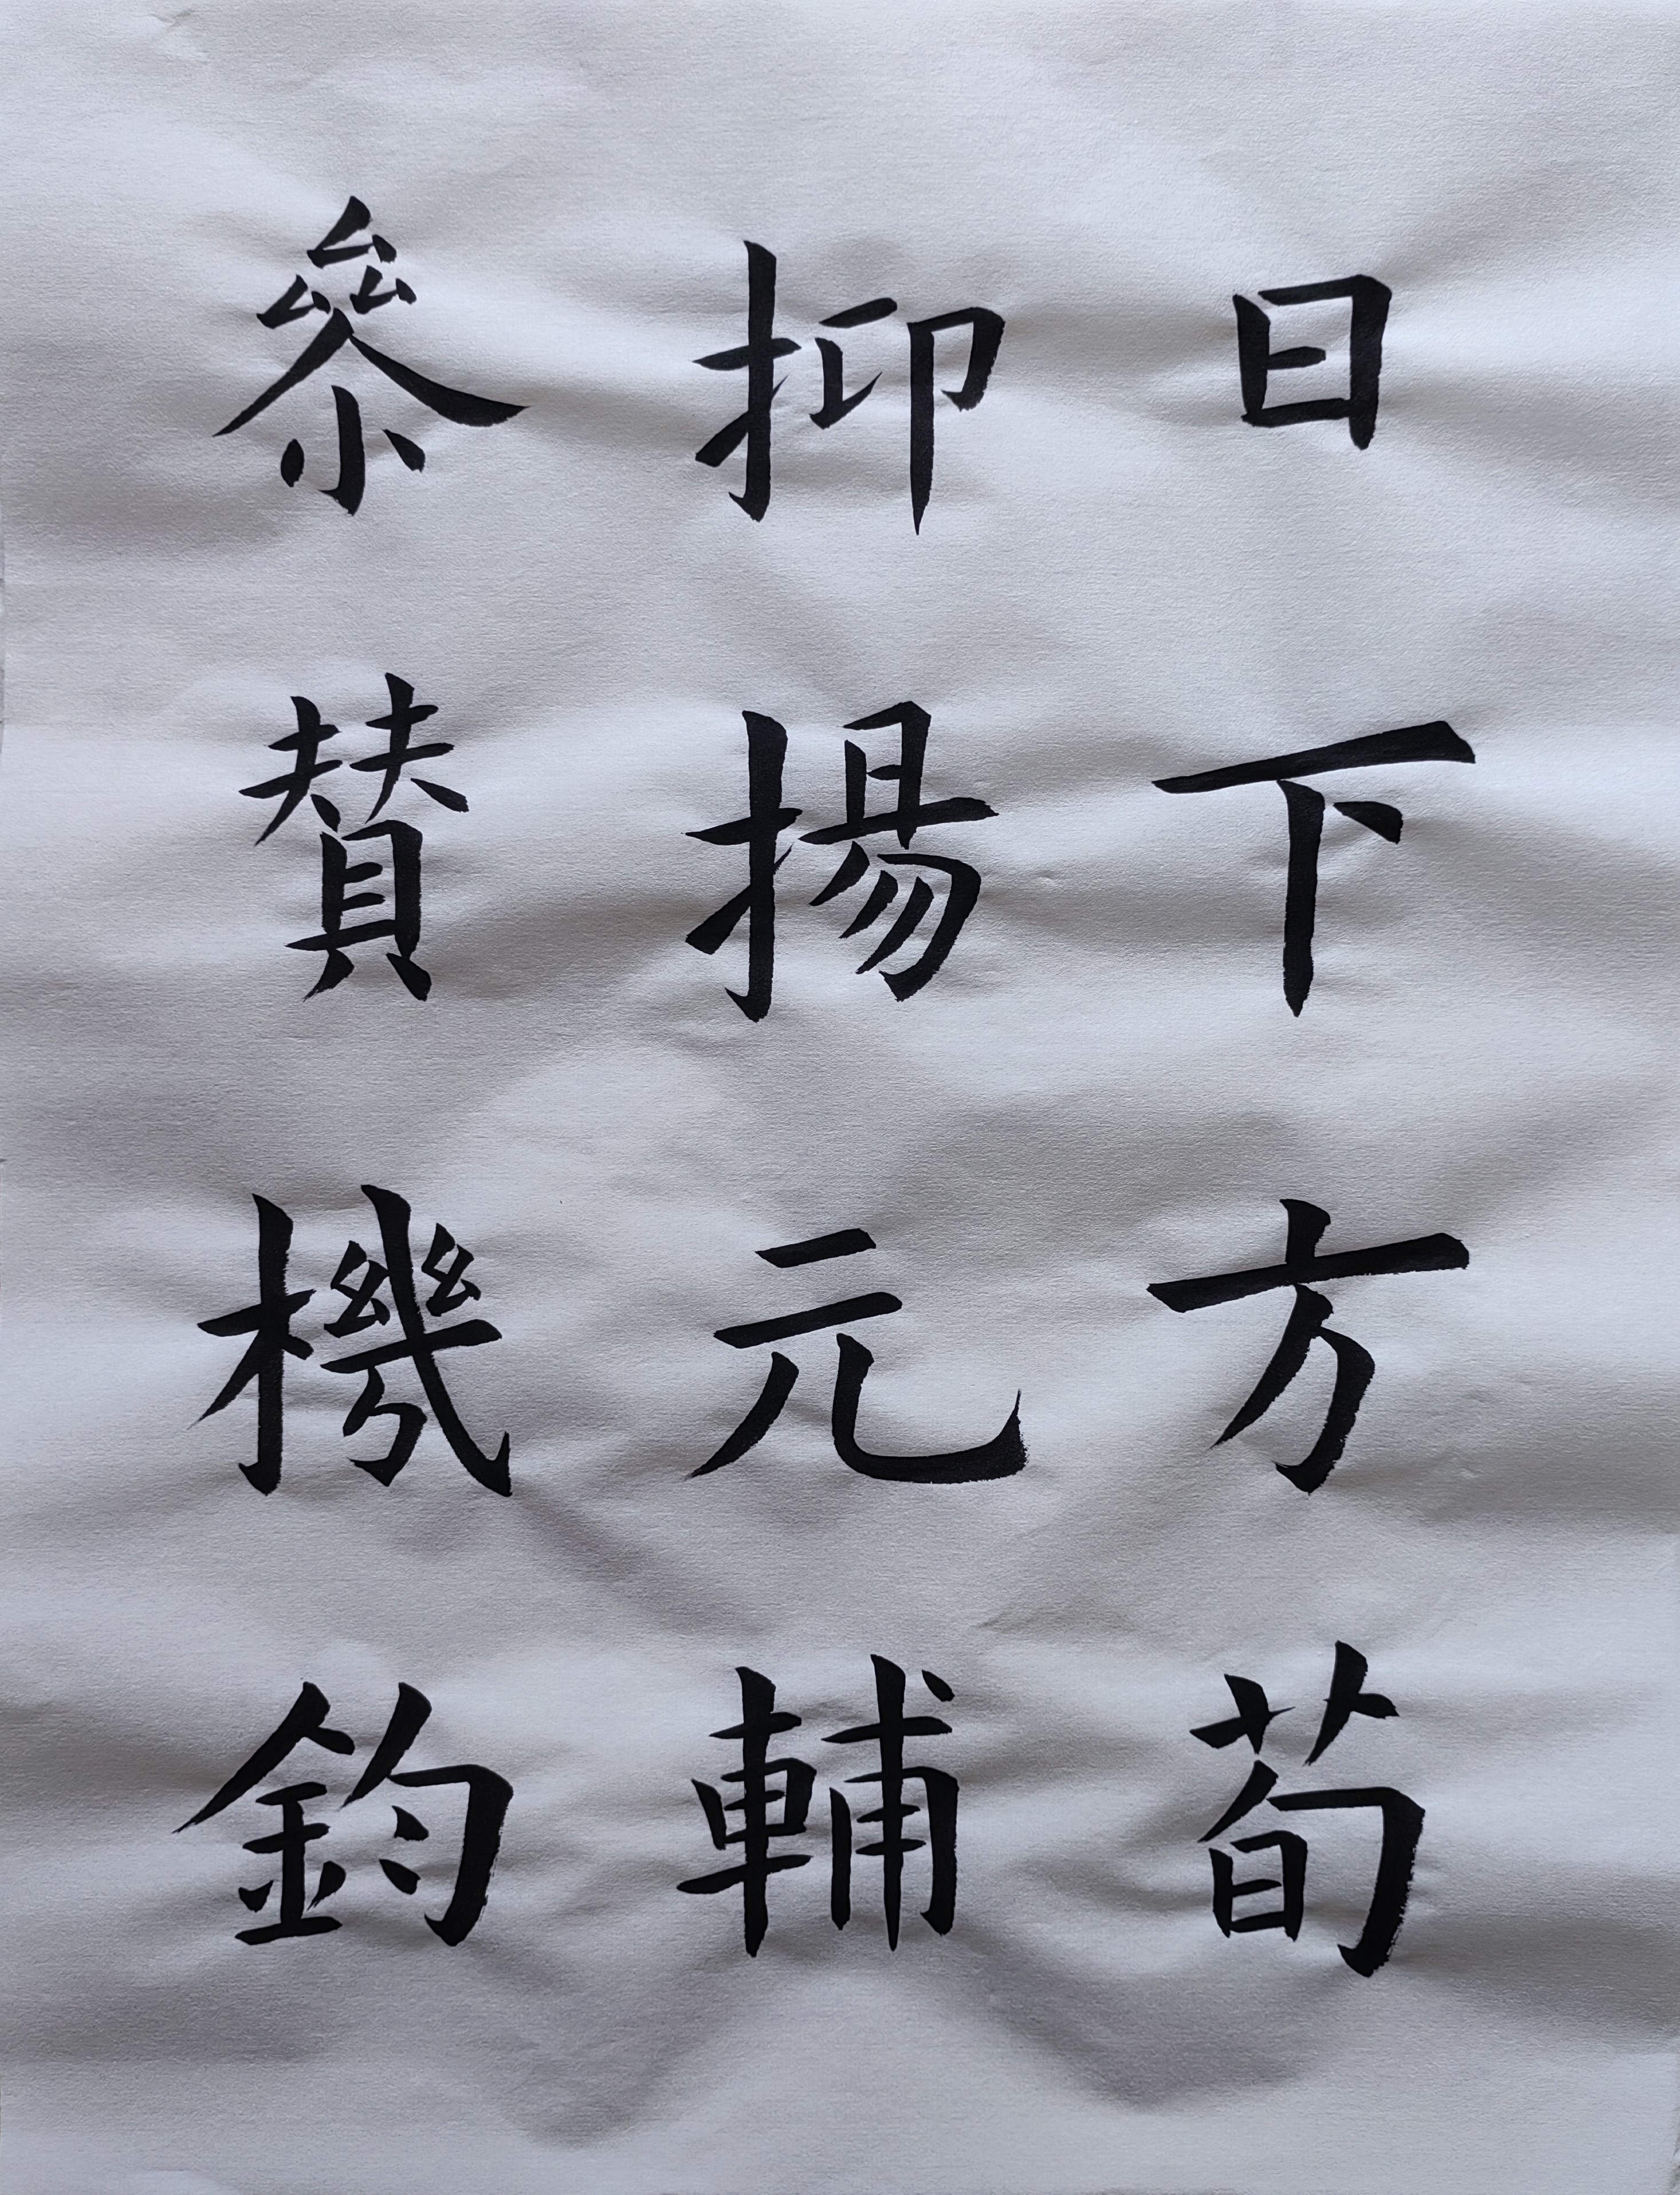 日下方荀
抑揚元輔
叅賛機鈞